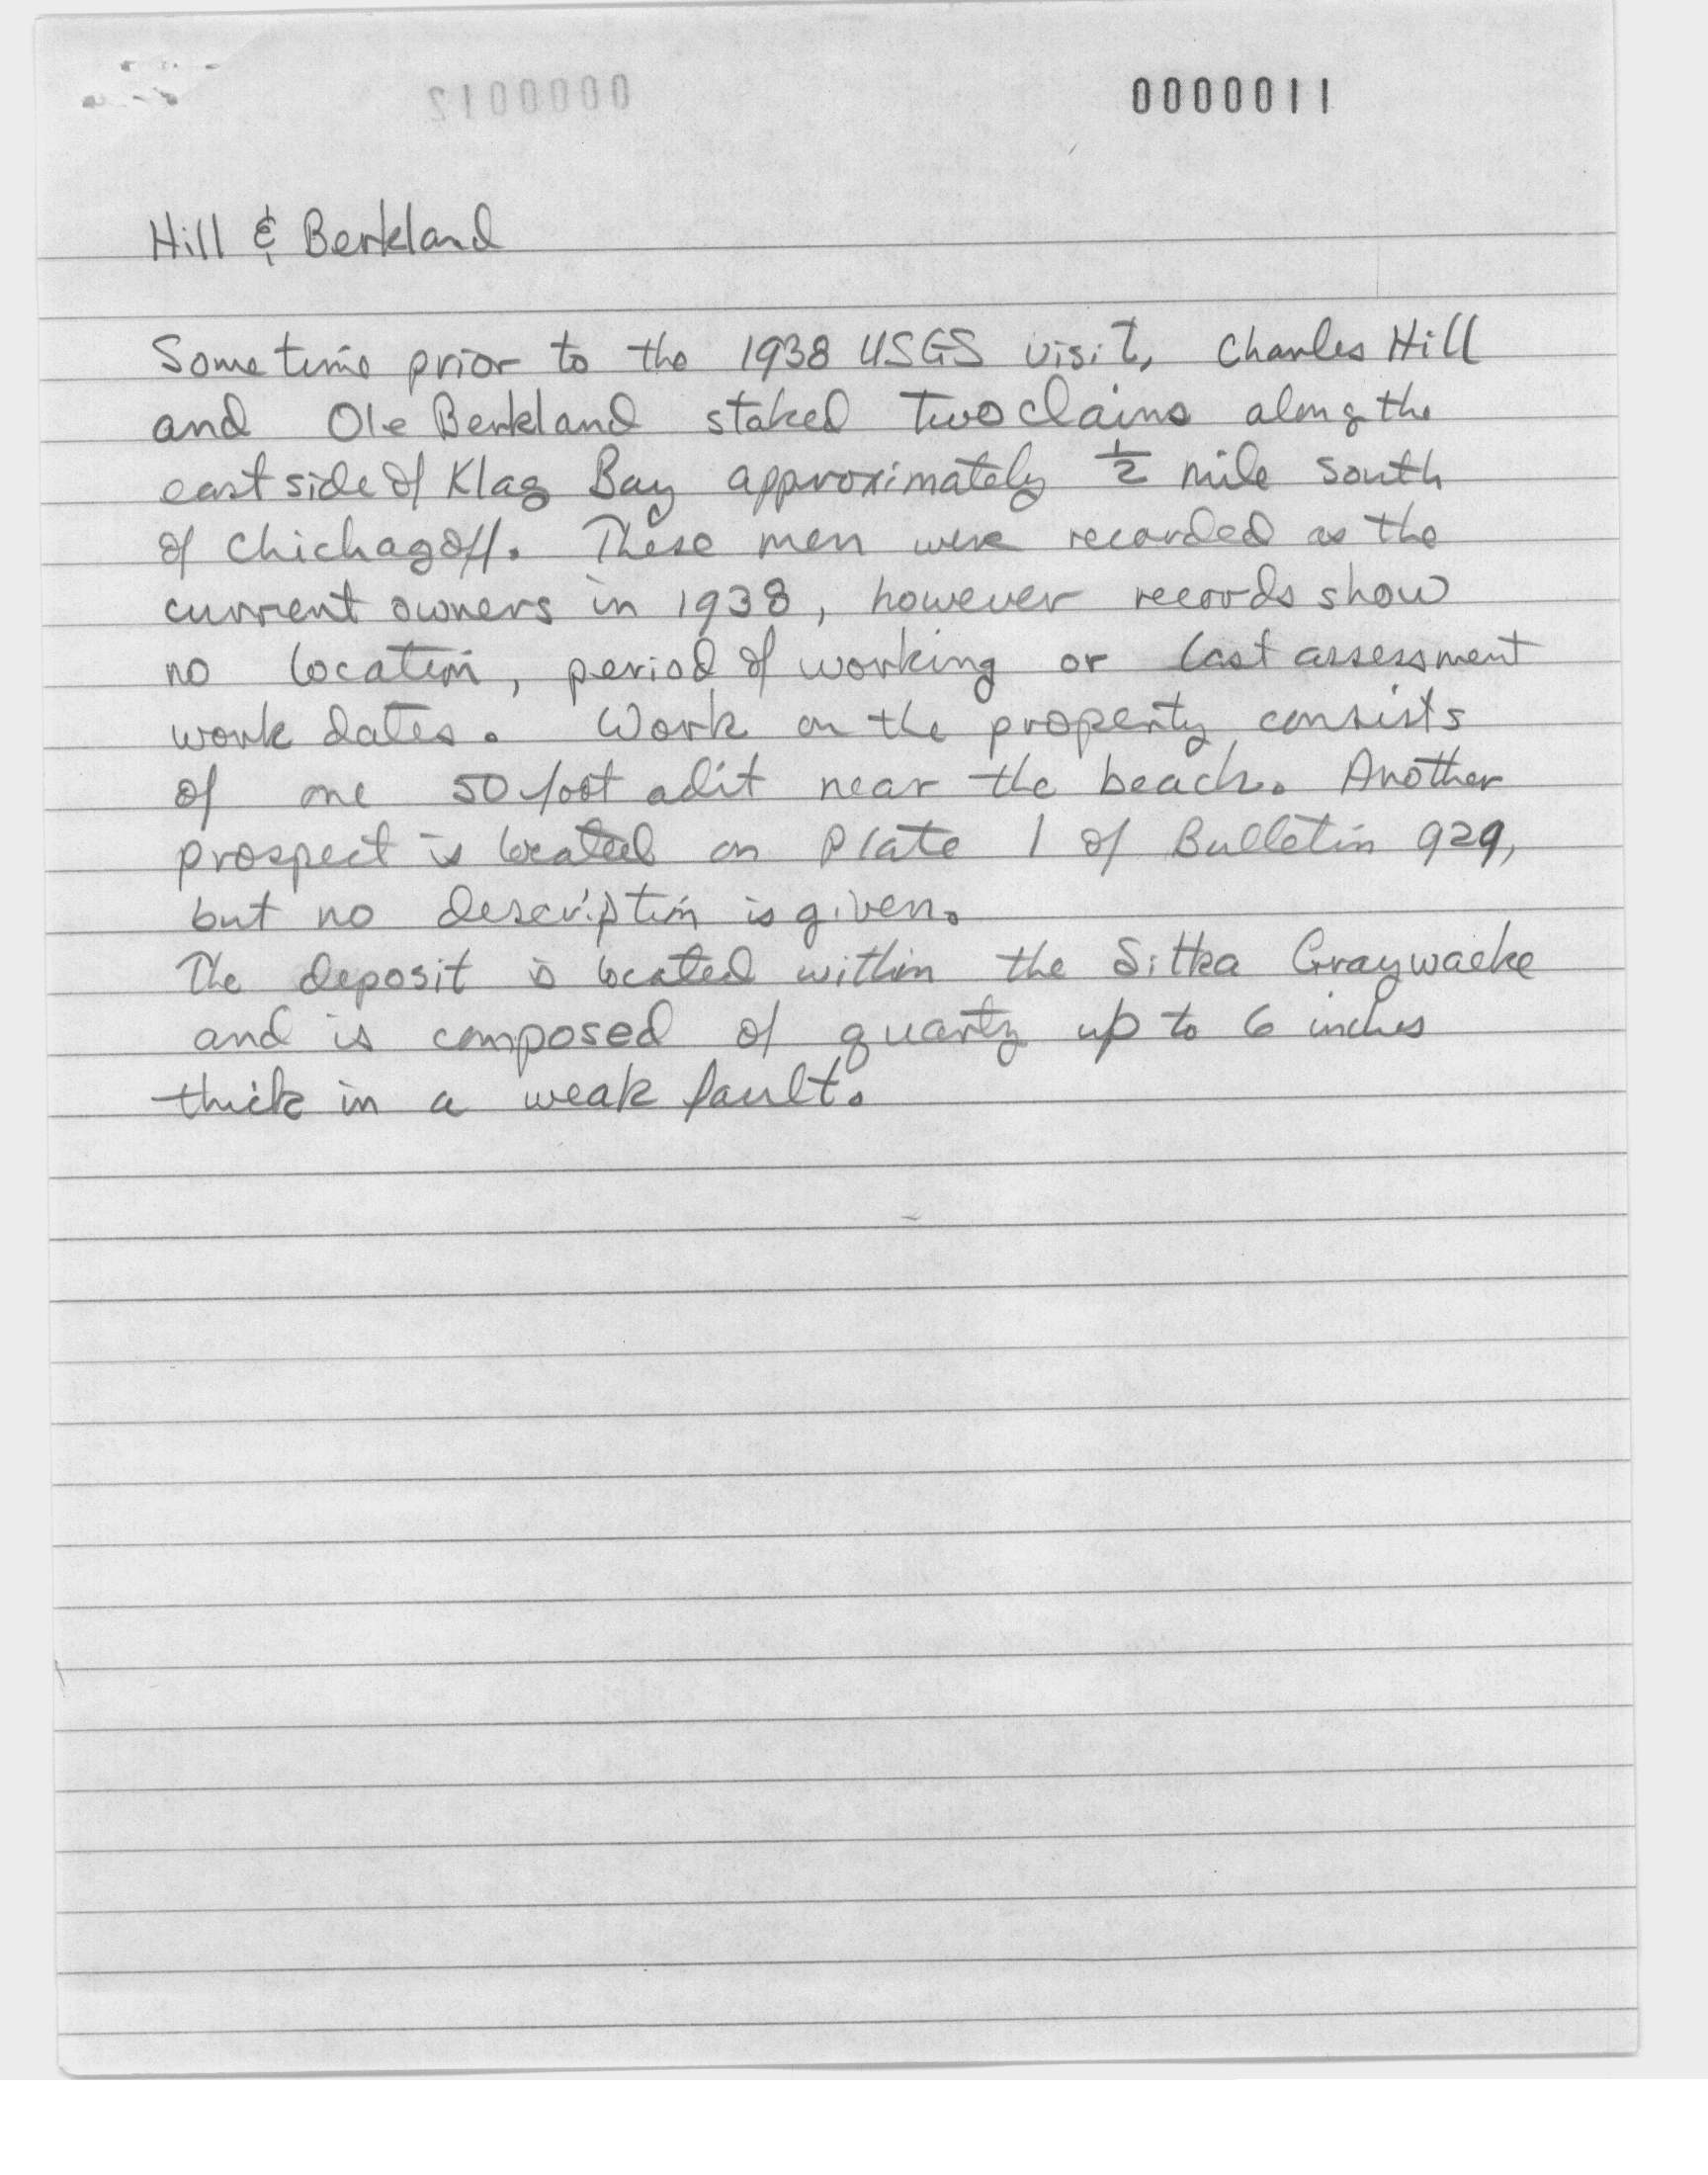 0000012 0000011
Hill & Berkland
Sometime prior to the 1938 USGS visit, Charles Hill
and Ole Berkland staked two claims along the
east side of Klag Bay approximately 1/2 mile south
of Chichagoff. These men were recorded as the
current owners in 1938, however records show
no location, period of working or last assessment
work dates. Work on the property consists
of one 50 foot adit near the beach. Another
prospect is located on Plate 1 of Bulletin 929,
but no description is given.
The deposit is located within the Sitka Graywacke
and is composed of quartz up to 6 inches
thick in a weak fault.